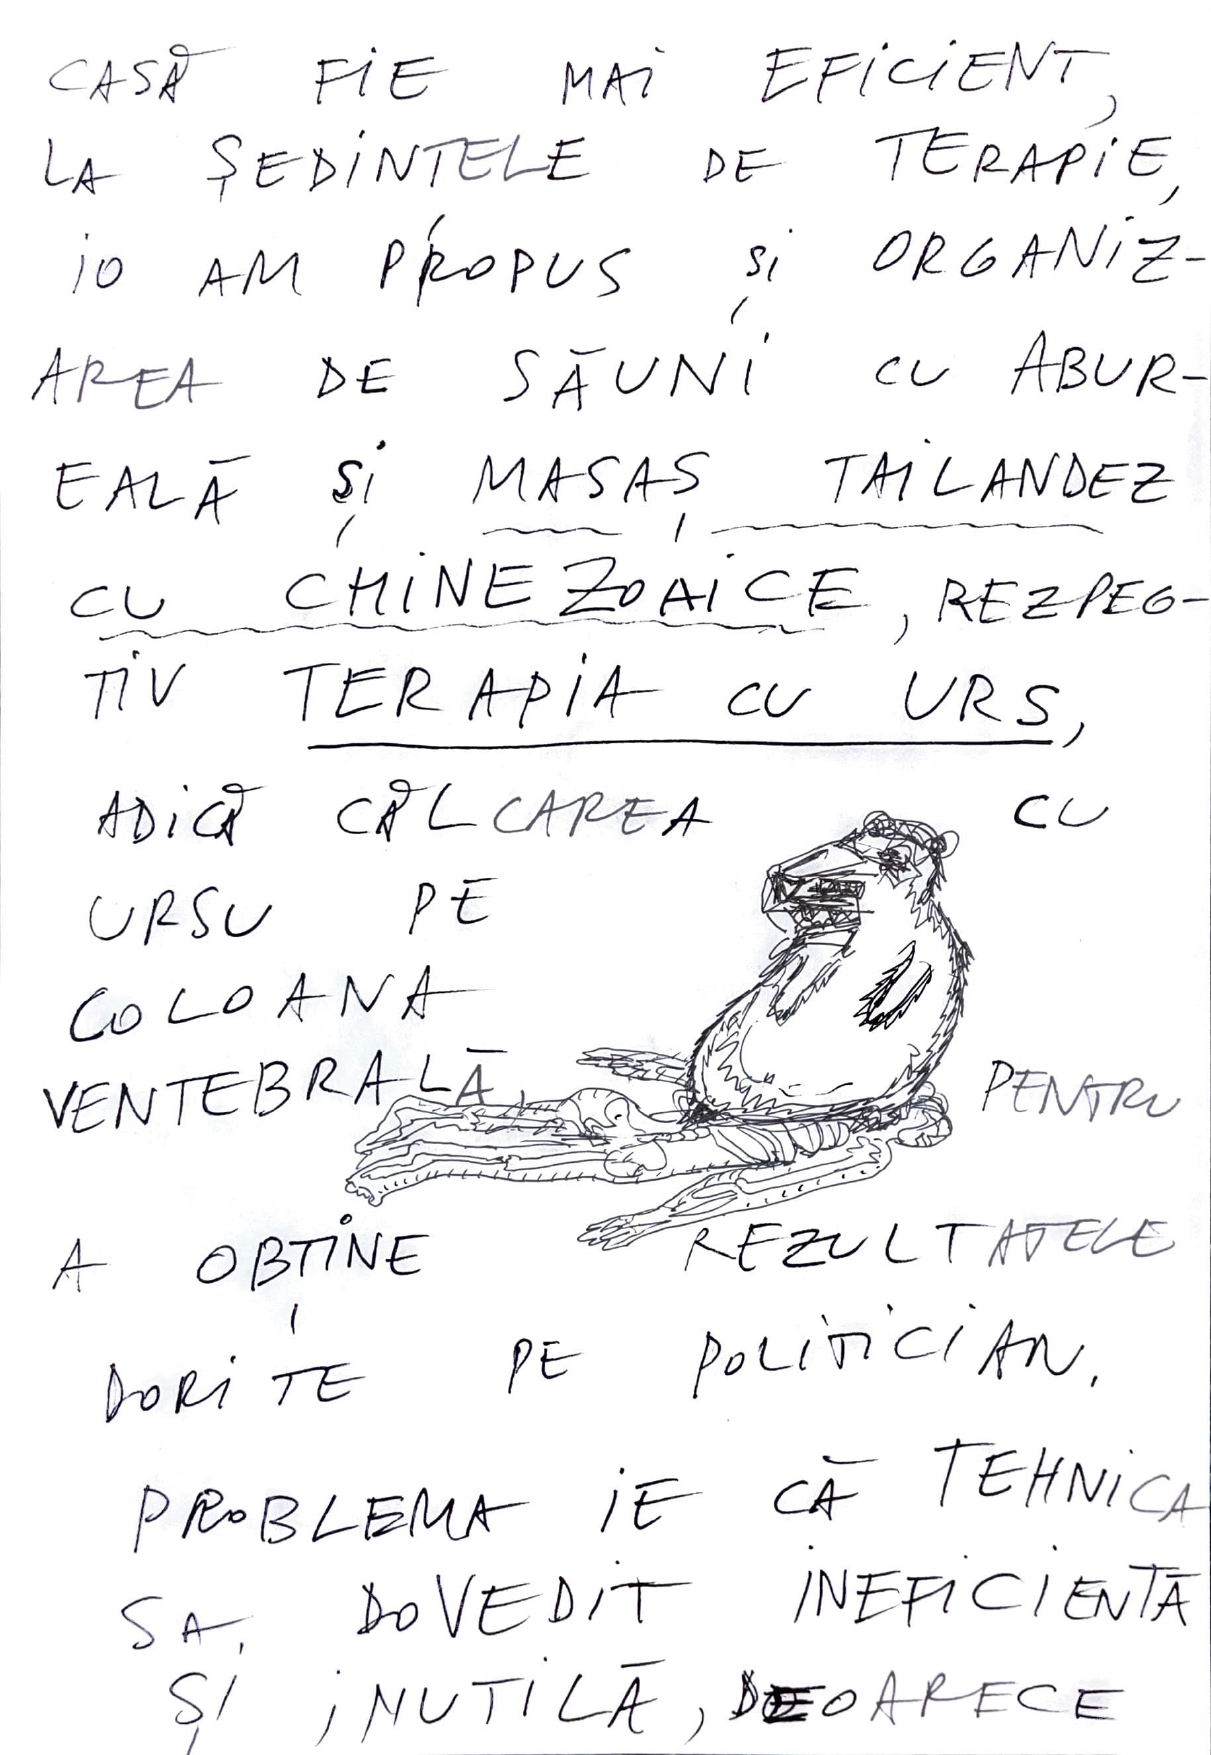 CASĂ FIE MAI EFICIENT,
LA ȘEDINTELE DE TERAPIE,
IO AM PROPUS ȘI ORGANIZ-
AREA DE SĂUNI CU ABUR-
EALĂ ȘI MASAȘ TAILANDEZ
CU CHINEZOAICE, REZPEG-
TIV TERAPIA CU URS,
ADICĂ CĂLCAREA CU
URSU PE
COLOANA
VENTEBRALĂ, PENTRU
A OBȚINE REZULTATELE
DORITE PE POLITICIAN.
PROBLEMA IE CĂ TEHNICA
SA. DOVEDIT INEFICIENTĂ
ȘI INUTILĂ, DEOARECE